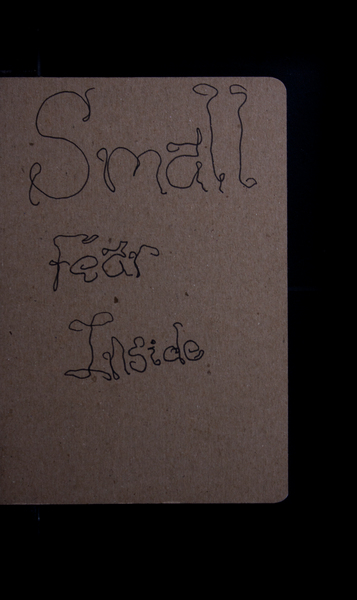 Small
Fear
Inside